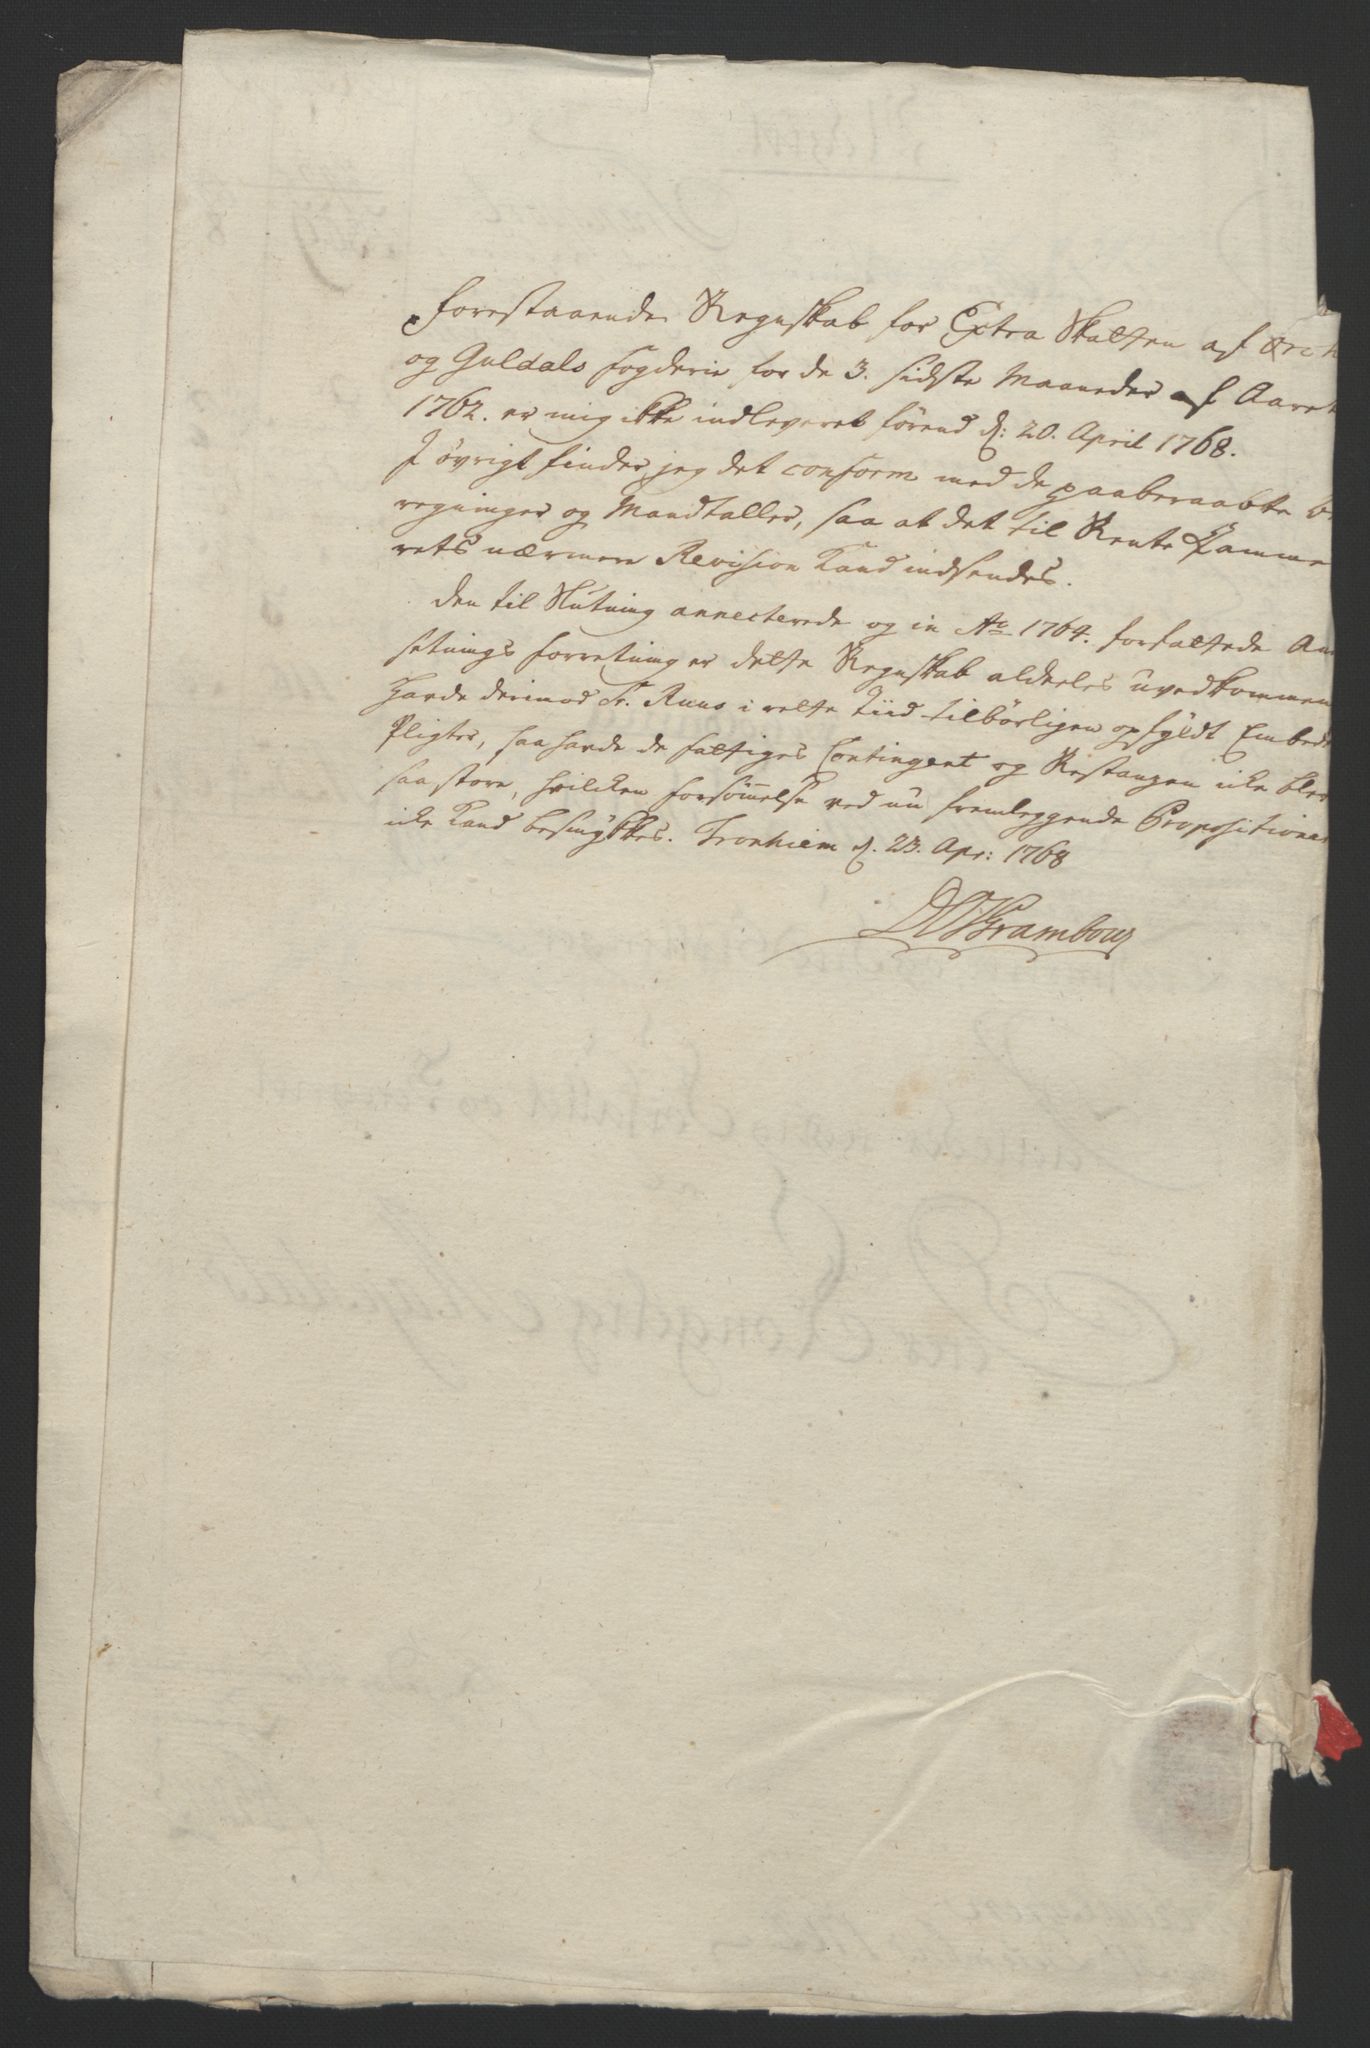 Forestaaende Regnskab for Extra Skatten af Ork
og Guldals fogderie for de 3. sidste Maaneder af Aaret
1762. er mig ikke indleveret förend d: 20. April 1768.
I övrigt finder jeg det conform med de paaberaabte be
regninger og Mandtaller, saa at det til Rente Kamme
rets nærmere Revision kand indsendes.
Den til Slutning annecterede og in Ao 1764. forfattede
setnings forretning er dette Regnskab aldeeles uvedkommen
Havde derimod Sr. Ruus i rette tiid tilbörligen opfyldt Embeds
Pligter, saa havde de skattiges Contingent og Restanzen icke blev
saa store, hvilcken forsömmelse ved nu fremleggende Propositioner
icke kand besmykkes. Tronhiem d. 23. Apr: 1768